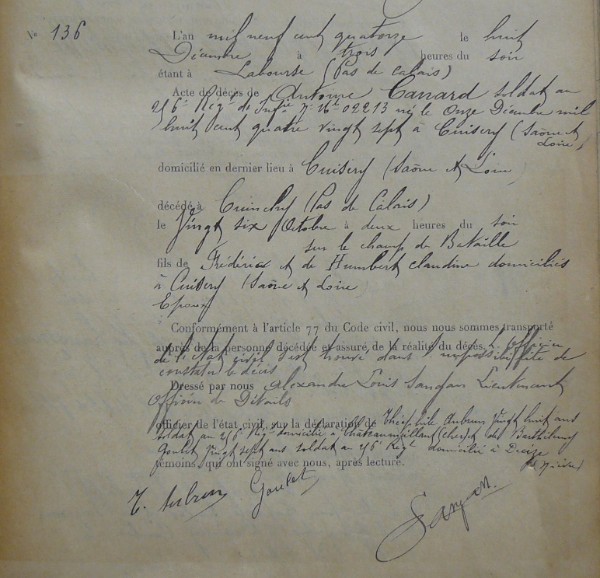 No 136
L'an mil neuf cent quatorze le huit
Décembre à trois heures du soir
étant à Labourse (Pas de Calais)
Acte de décès de Antoine Canard soldat au
256e Régt de Infie No Mle 02213 né le Onze Décembre mil
huit cent quatre vingt sept à Cuisery (Saône et
Loire)
domicilié en dernier lieu à Cuisery (Saône et Loire)
décédé à Cuinchy (Pas de Calais)
le Vingt six Octobre à deux heures du soir
sur le champ de Bataille
fils de Frédérick et de Humbert Claudine domiciliés
à Cuisery (Saône et Loire)
Epoux
Conformément à l'article 77 du Code civil, nous nous sommes transporté
auprès de la personne décédée et assuré de la réalité du décès. L'officier
de l'état civil s'est trouvé dans l'impossibilité de
constater le décès
Dressé par nous Alexandre Louis Sanjan Lieutenant
Officier de Détails
officier de l'état civil, sur la déclaration de Théophile Aubrun Vingt huit ans
soldat au 256e Régt domicilié à Châteaumeillant (Cher) et de Barthélemy
Goulet Vingt sept ans soldat au 256e Régt domicilié à Decize
(Nièvre)
témoins, qui ont signé avec nous, après lecture.
T. Aubrun Goulet
Sanjan